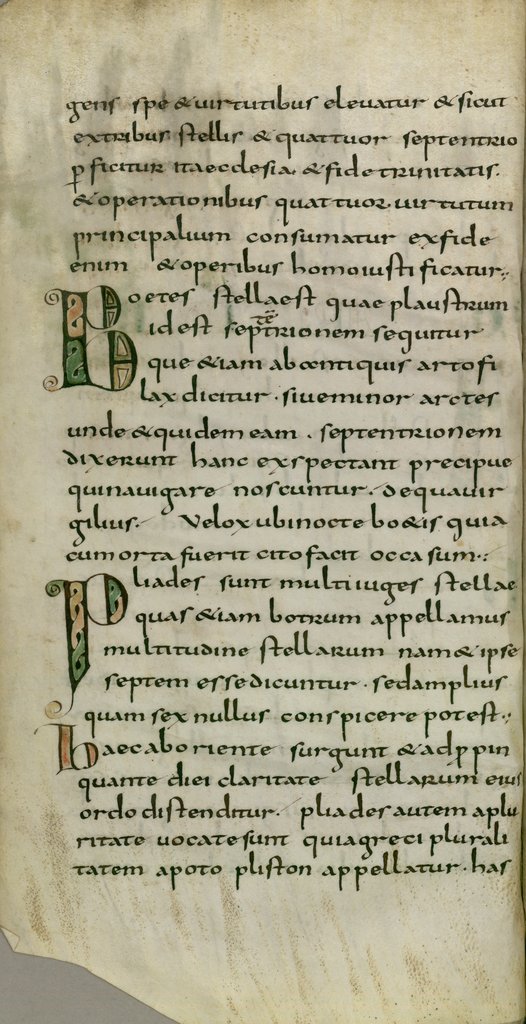 gens spe & uirtutibus eleuatur & sicut
extribus stellis & quattuor septentrio
p ficitur itaecclesia. & fide trinitatis.
& operationibus quattuor uirtutum
principalium consumatur exfide
enim & operibus homo iusti ficatur;
Boetes stellaest quae plaustrum
idest septrionem sequitur
que &iam aboantiquis artofi
lax dicitur . siueminor arctes
unde & quidem eam . septentrionem
dixerunt hanc exspectant precipue
quinauigare noscuntur . dequauir
gilius . Velox ubinocte bo&is quia
cumorta fuerit cito facit occasum .
Pliades sunt multiiuges stellae
quas &iam botrum appellamus
multitudine stellarum nam & ipse
septem essedicuntur . sedamplius
quam sex nullus conspicere potest .
haecaboriente surgunt & adppin
quante diei claritate stellarum eius
ordo distenditur . pliadesautem aplu
ritate uocatesunt quiagreci plurali
tatem apoto pliston appellatur . has